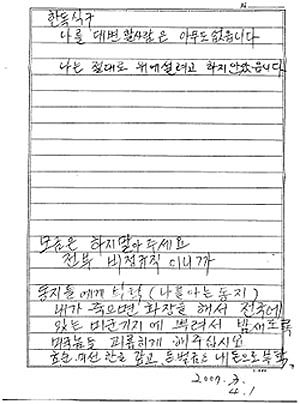 한독식구
나를 대변할사람은 아무도없읍니다
나는 절대로 위에설려고 하지않았읍니다
모금은 하지말아주세요
전부 비정규직 이니까
동지들에게 부탁 (나를아는동지)
내가 죽으면 화장을 해서 전국에
있는 미군기지에 뿌려서 밤새도록
미군놈들 괴롭히게 해주십시요
효순.미선 한을 갚고,
돈으로
2007. 3.
4.1